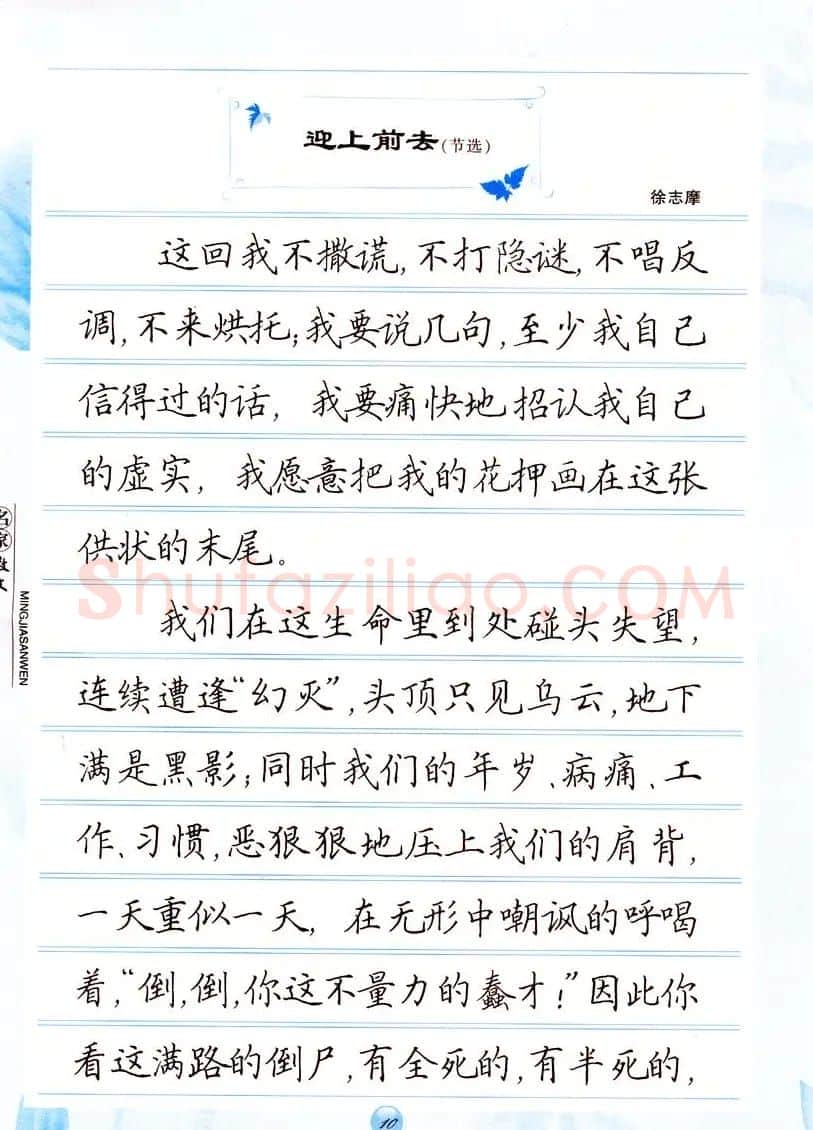 迎上前去(节选)
徐志摩
这回我不撒谎,不打隐谜,不唱反
调,不来烘托;我要说几句,至少我自己
信得过的话,我要痛快地招认我自己
的虚实,我愿意把我的花押画在这张
供状的末尾。
我们在这生命里到处碰头失望,
连续遭逢“幻灭”,头顶只见乌云,地下
满是黑影;同时我们的年岁、病痛、工
作、习惯,恶狠狠地压上我们的肩背,
一天重似一天,在无形中嘲讽的呼喝
着,“倒,倒,你这不量力的蠢才!”因此你
看这满路的倒尸,有全死的,有半死的,
MINGJIASANWEN
Shufaziliao.COM
10